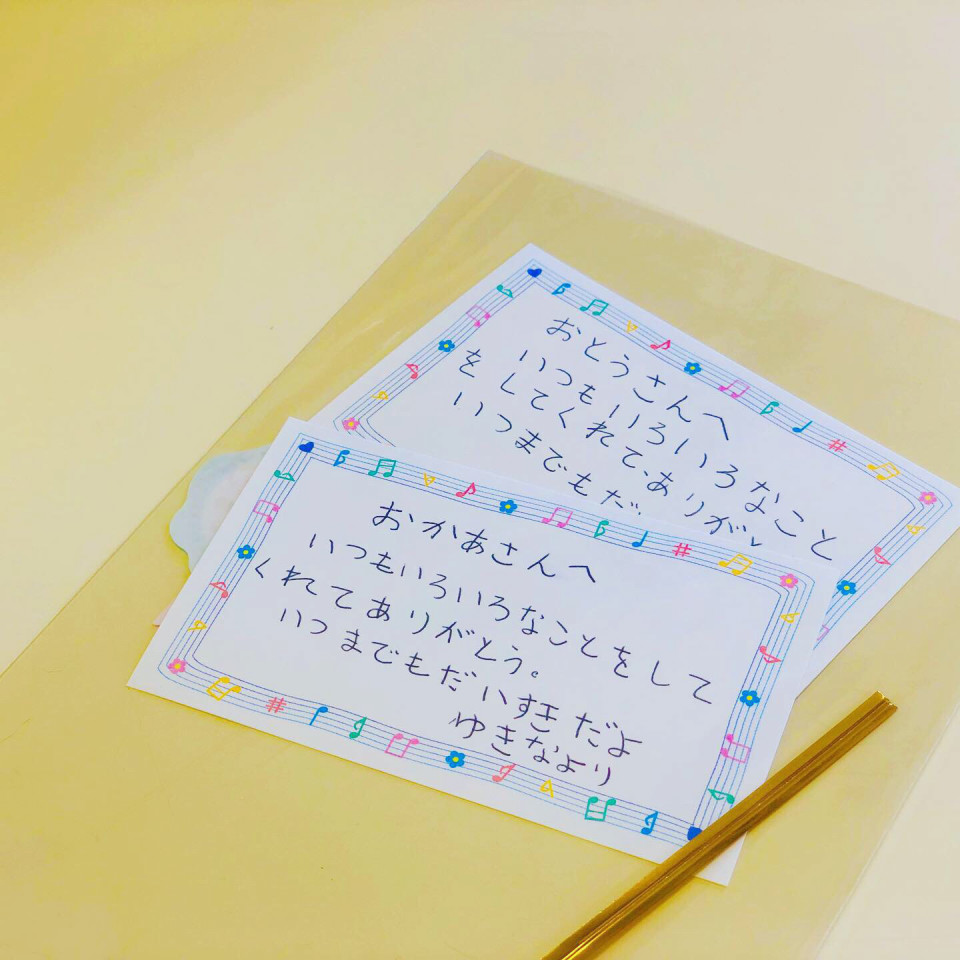 おとうさんへ
いつもいろいろなこと
をしてくれて、ありが
いつまでもだ
おかあさんへ
いつもいろいろなことをして
くれてありがとう。
いつまでもだいすきだよ
ゆきなより